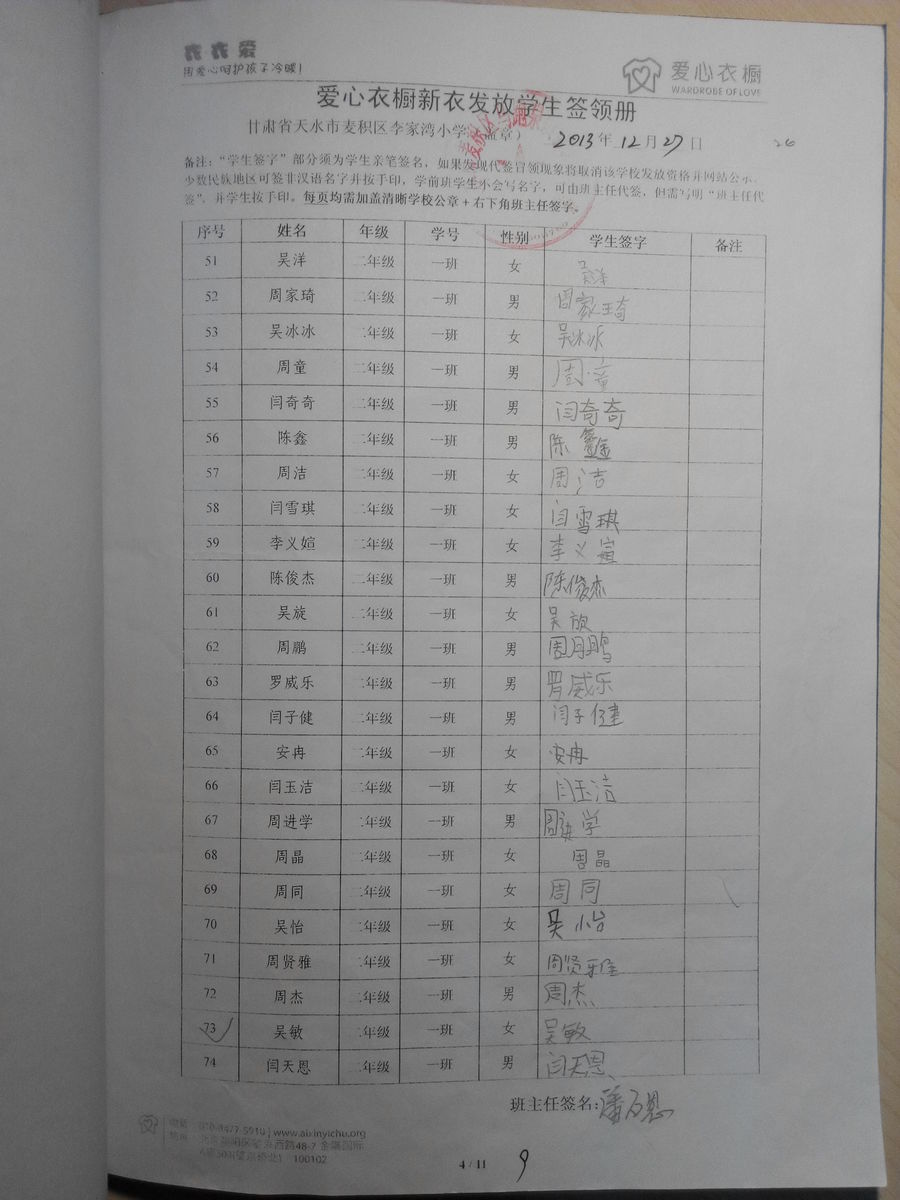 衣衣爱
用爱心呵护孩子冷暖！
爱心衣橱
WARDROBE OF LOVE
爱心衣橱新衣发放学生签领册
甘肃省天水市麦积区李家湾小学（盖章） 2013年12月27日
备注：“学生签字”部分须为学生亲笔签名，如果发现代签冒领现象将取消该学校发放资格并网站公示。
少数民族地区可签非汉语名字并按手印，学前班学生不会写名字，可由班主任代签，但需写明“班主任代
签”，并学生按手印。每页均需加盖清晰学校公章+右下角班主任签字。
序号 姓名 年级 学号 性别 学生签字 备注
51 吴洋 二年级 一班 女 吴洋
52 周家琦 二年级 一班 男 周家琦
53 吴冰冰 二年级 一班 女 吴冰冰
54 周童 二年级 一班 男 周童
55 闫奇奇 二年级 一班 男 闫奇奇
56 陈鑫 二年级 一班 男 陈鑫
57 周洁 二年级 一班 女 周洁
58 闫雪琪 二年级 一班 女 闫雪琪
59 李义媗 二年级 一班 女 李义萱
60 陈俊杰 二年级 一班 男 陈俊杰
61 吴旋 二年级 一班 女 吴旋
62 周鹏 二年级 一班 男 周鹏
63 罗威乐 二年级 一班 男 罗威乐
64 闫子健 二年级 一班 男 闫子健
65 安冉 二年级 一班 女 安冉
66 闫玉洁 二年级 一班 女 闫玉洁
67 周进学 二年级 一班 男 周进学
68 周晶 二年级 一班 女 周晶
69 周同 二年级 一班 女 周同
70 吴怡 二年级 一班 女 吴怡
71 周贤雅 二年级 一班 女 周贤雅
72 周杰 二年级 一班 男 周杰
73 吴敏 二年级 一班 女 吴敏
74 闫天恩 二年级 一班 男 闫天恩
班主任签名：
www.aixinyichu.org
100102
4 / 11
9